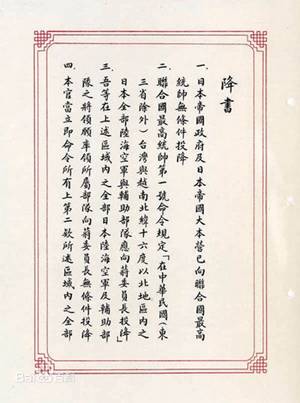 降書
一、日本帝國政府及日本帝國大本營已向聯合國最高
統帥無條件投降
二、聯合國最高統帥第一號命令規定「在中華民國(東
三省除外)台灣與越南北緯十六度以北地區內之
日本全部陸海空軍與輔助部隊應向蔣委員長投降」
三、吾等在上述區域內之全部日本陸海空軍及輔助部
隊之將領願率領所屬部隊向蔣委員長無條件投降
四、本官當立即命令所有上第二款所述區域內之全部
Baidu百科